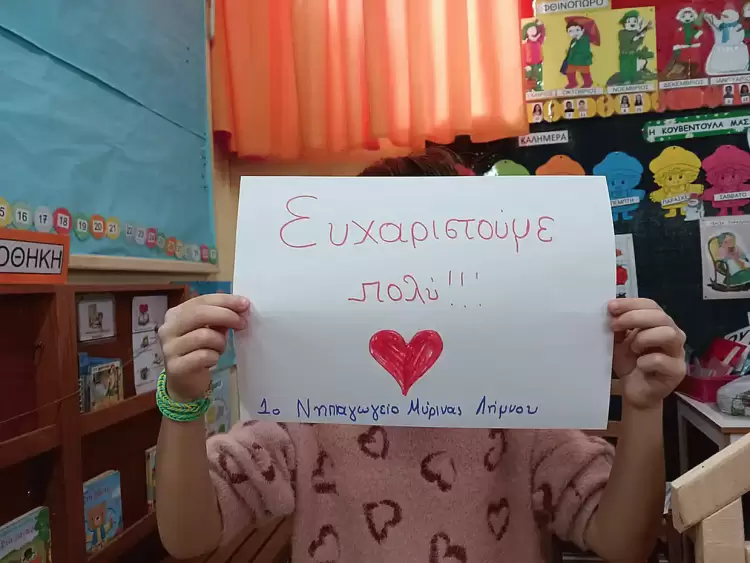 ΦΘΙΝΟΠΩΡΟ
ΟΚΤΩΒΡΙΟΣ
ΝΟΕΜΒΡΙΟΣ
ΔΕΚΕΜΒΡΙΟΣ
ΙΑΝΟΥΑΡΙΟΣ
ΚΑΛΗΜΕΡΑ
Η ΚΟΥΒΕΝΤΟΥΛΑ ΜΑΣ
ΠΕΜΠΤΗ
ΠΑΡΑΣΚΕΥΗ
ΣΑΒΒΑΤΟ
15 16 17 18 19 20 21 22 23 24 25
ΟΘΗΚΗ
Ευχαριστούμε
πολύ!!!
1ο Νηπαγωγείο Μύρινας Λήμνου